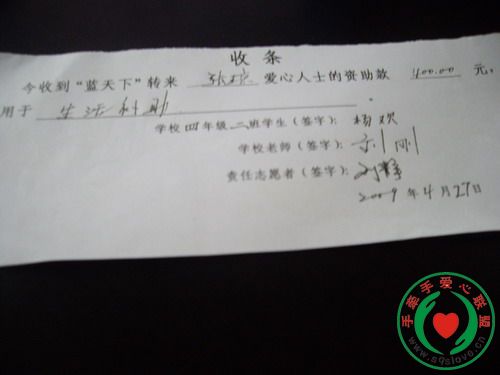 收条
今收到“蓝天下”转来 张琼 爱心人士的资助款 400.00 元,
用于 生活补助 。
学校四年级二班学生(签字): 杨欢
学校老师(签字): 刘刚
责任志愿者(签字): 刘静
2009年4月27日
手牵手爱心联盟
www.sqslove.cn